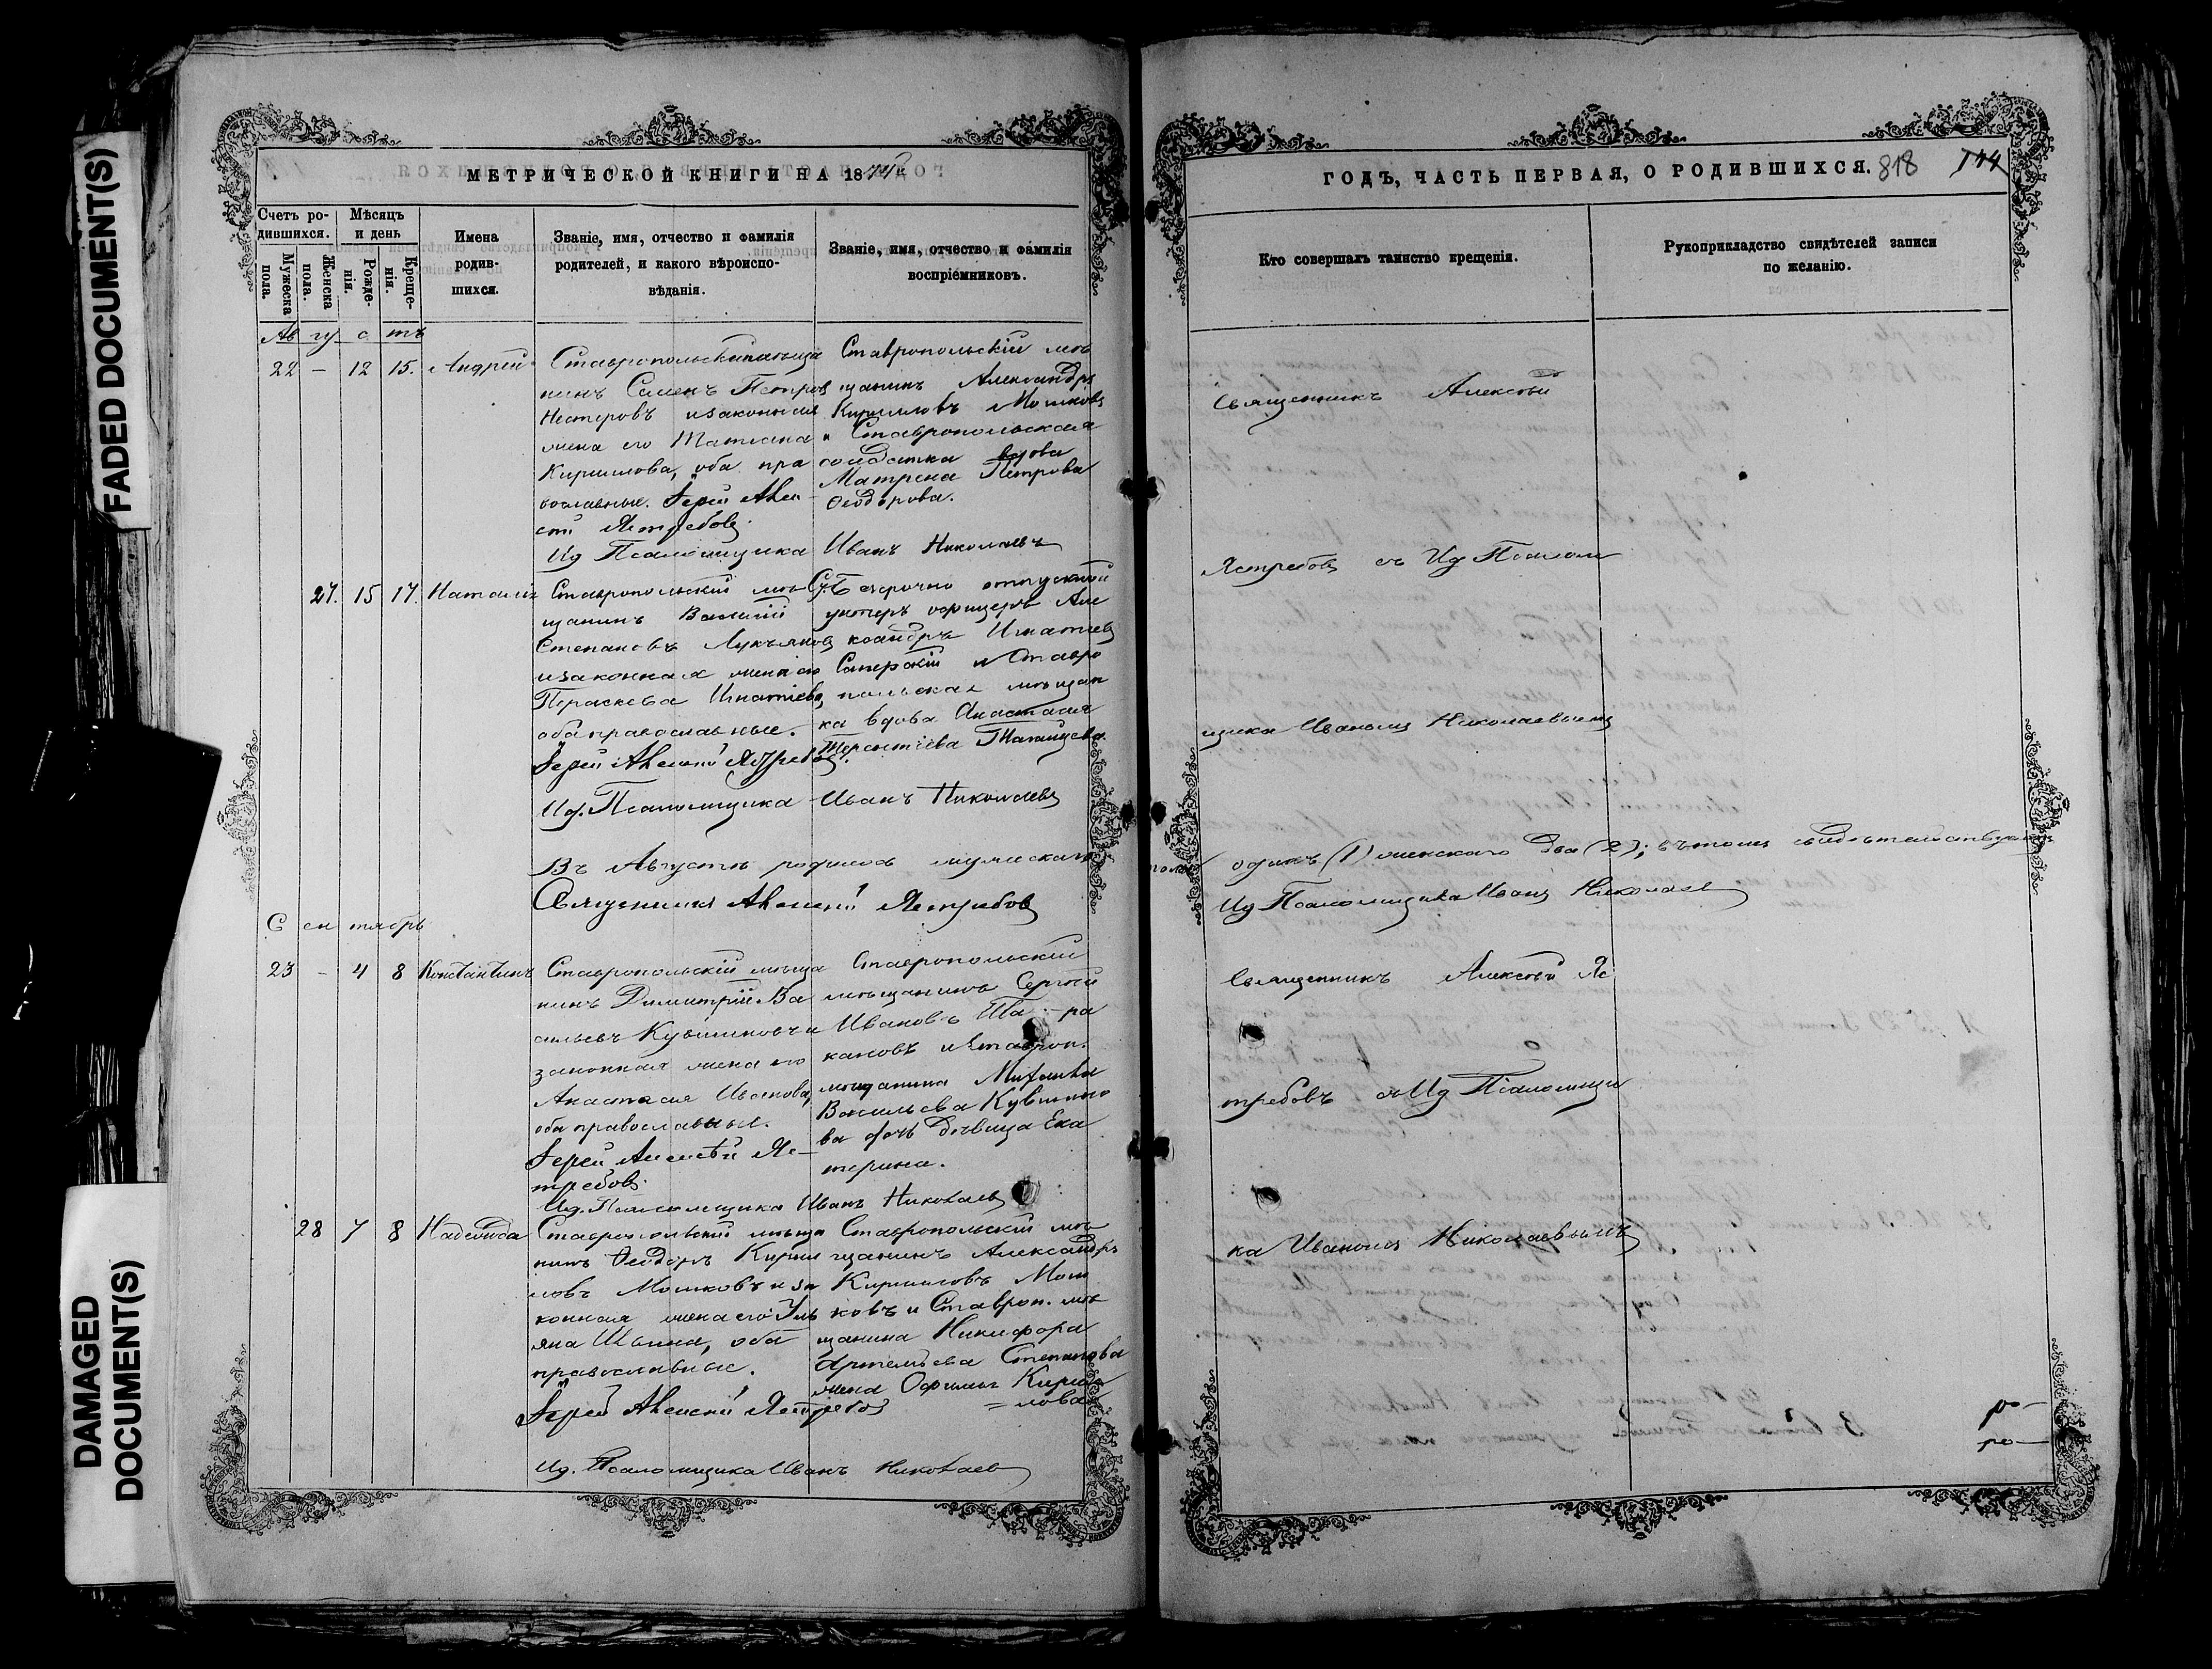 FADED DOCUMENT(S)
DAMAGED
DOCUMENT(S)
МЕТРИЧЕСКОЙ КНИГИ НА 18
Счетъ ро-
дившихся.
Мѣсяцъ
и день
Мужеска
пола.
Женска
пола.
Рожде-
нія.
Креще-
нія.
Имена
родив-
шихся.
Званіе, имя, отчество и фамилія
родителей, и какого вѣроиспо-
вѣданія.
Званіе, имя, отчество и фамилія
воспріемниковъ.
Августъ
22 – 12 15. Андрей
Ставропольскій мѣща
нинъ Семенъ Петровъ
Нестеровъ и законная
жена его Татіана
Кириллова, оба пра
вославные. Іерей Алек
сѣй Ястребовъ.
Ставропольскій мѣ
щанинъ Александръ
Кирилловъ Мошковъ
и Ставропольская
солдатка вдова
Матрена Петрова
Ѳеодорова.
Ид Псаломщика Иванъ Николаевъ
27. 15 17. Наталія
Ставропольскій мѣ
щанинъ Василій
Степановъ Лукьяновъ
и законная жена его
Параскева Игнатіева,
оба православные.
Іерей Алексѣй Ястребовъ.
безсрочно отпускной
унтеръ офицеръ Але
ксандръ Игнатіевъ
и Ставро
польская мѣщан
ка вдова Анастасія
Терентіева
Ид. Псаломщика Иванъ Николаевъ
Въ Августѣ родилось мужескаго
Священникъ Алексѣй Ястребовъ
Сентябрь
23 – 4 8 Константинъ
Ставропольскій мѣща
нинъ Димитрій Ва
сильевъ Кувшиновъ и
законная жена его
Анастасія Иванова,
оба православные.
Іерей Алексѣй Яс-
требовъ.
Ставропольскій
мѣщанинъ Сергѣй
Ивановъ
кановъ и Ставроп.
мѣщанина Михаила
Васильева Кувшино
ва дочь дѣвица Ека
терина.
Ид. Псаломщика Иванъ Николаевъ
28 7 8 Надежда
Ставропольскій мѣща
нинъ Ѳеодоръ Кирил
ловъ Мошковъ и за
конная жена его Уль
яна Ильина, оба
православные.
Іерей Алексѣй Ястребовъ
Ставропольскій мѣ
щанинъ Александръ
Кирилловъ Мош
ковъ и Ставроп. мѣ
щанина Никифора
Артемьева Степанова
жена Кирил
= лова
Ид. Псаломщика Иванъ Николаевъ
ГОДЪ, ЧАСТЬ ПЕРВАЯ, О РОДИВШИХСЯ. 818 144
Кто совершалъ таинство крещенія.
Рукоприкладство свидѣтелей записи
по желанію.
Священникъ Алексѣй
Ястребовъ съ Ид Псалом
щика Иваномъ Николаевымъ
пола одинъ (1) женскаго два (2); въ томъ свидѣтельствуемъ
Ид Псаломщика Иванъ Николаевъ
Священникъ Алексѣй Яс
требовъ съ Ид Псаломщи
ка Иваномъ Николаевымъ
ро—
ро—